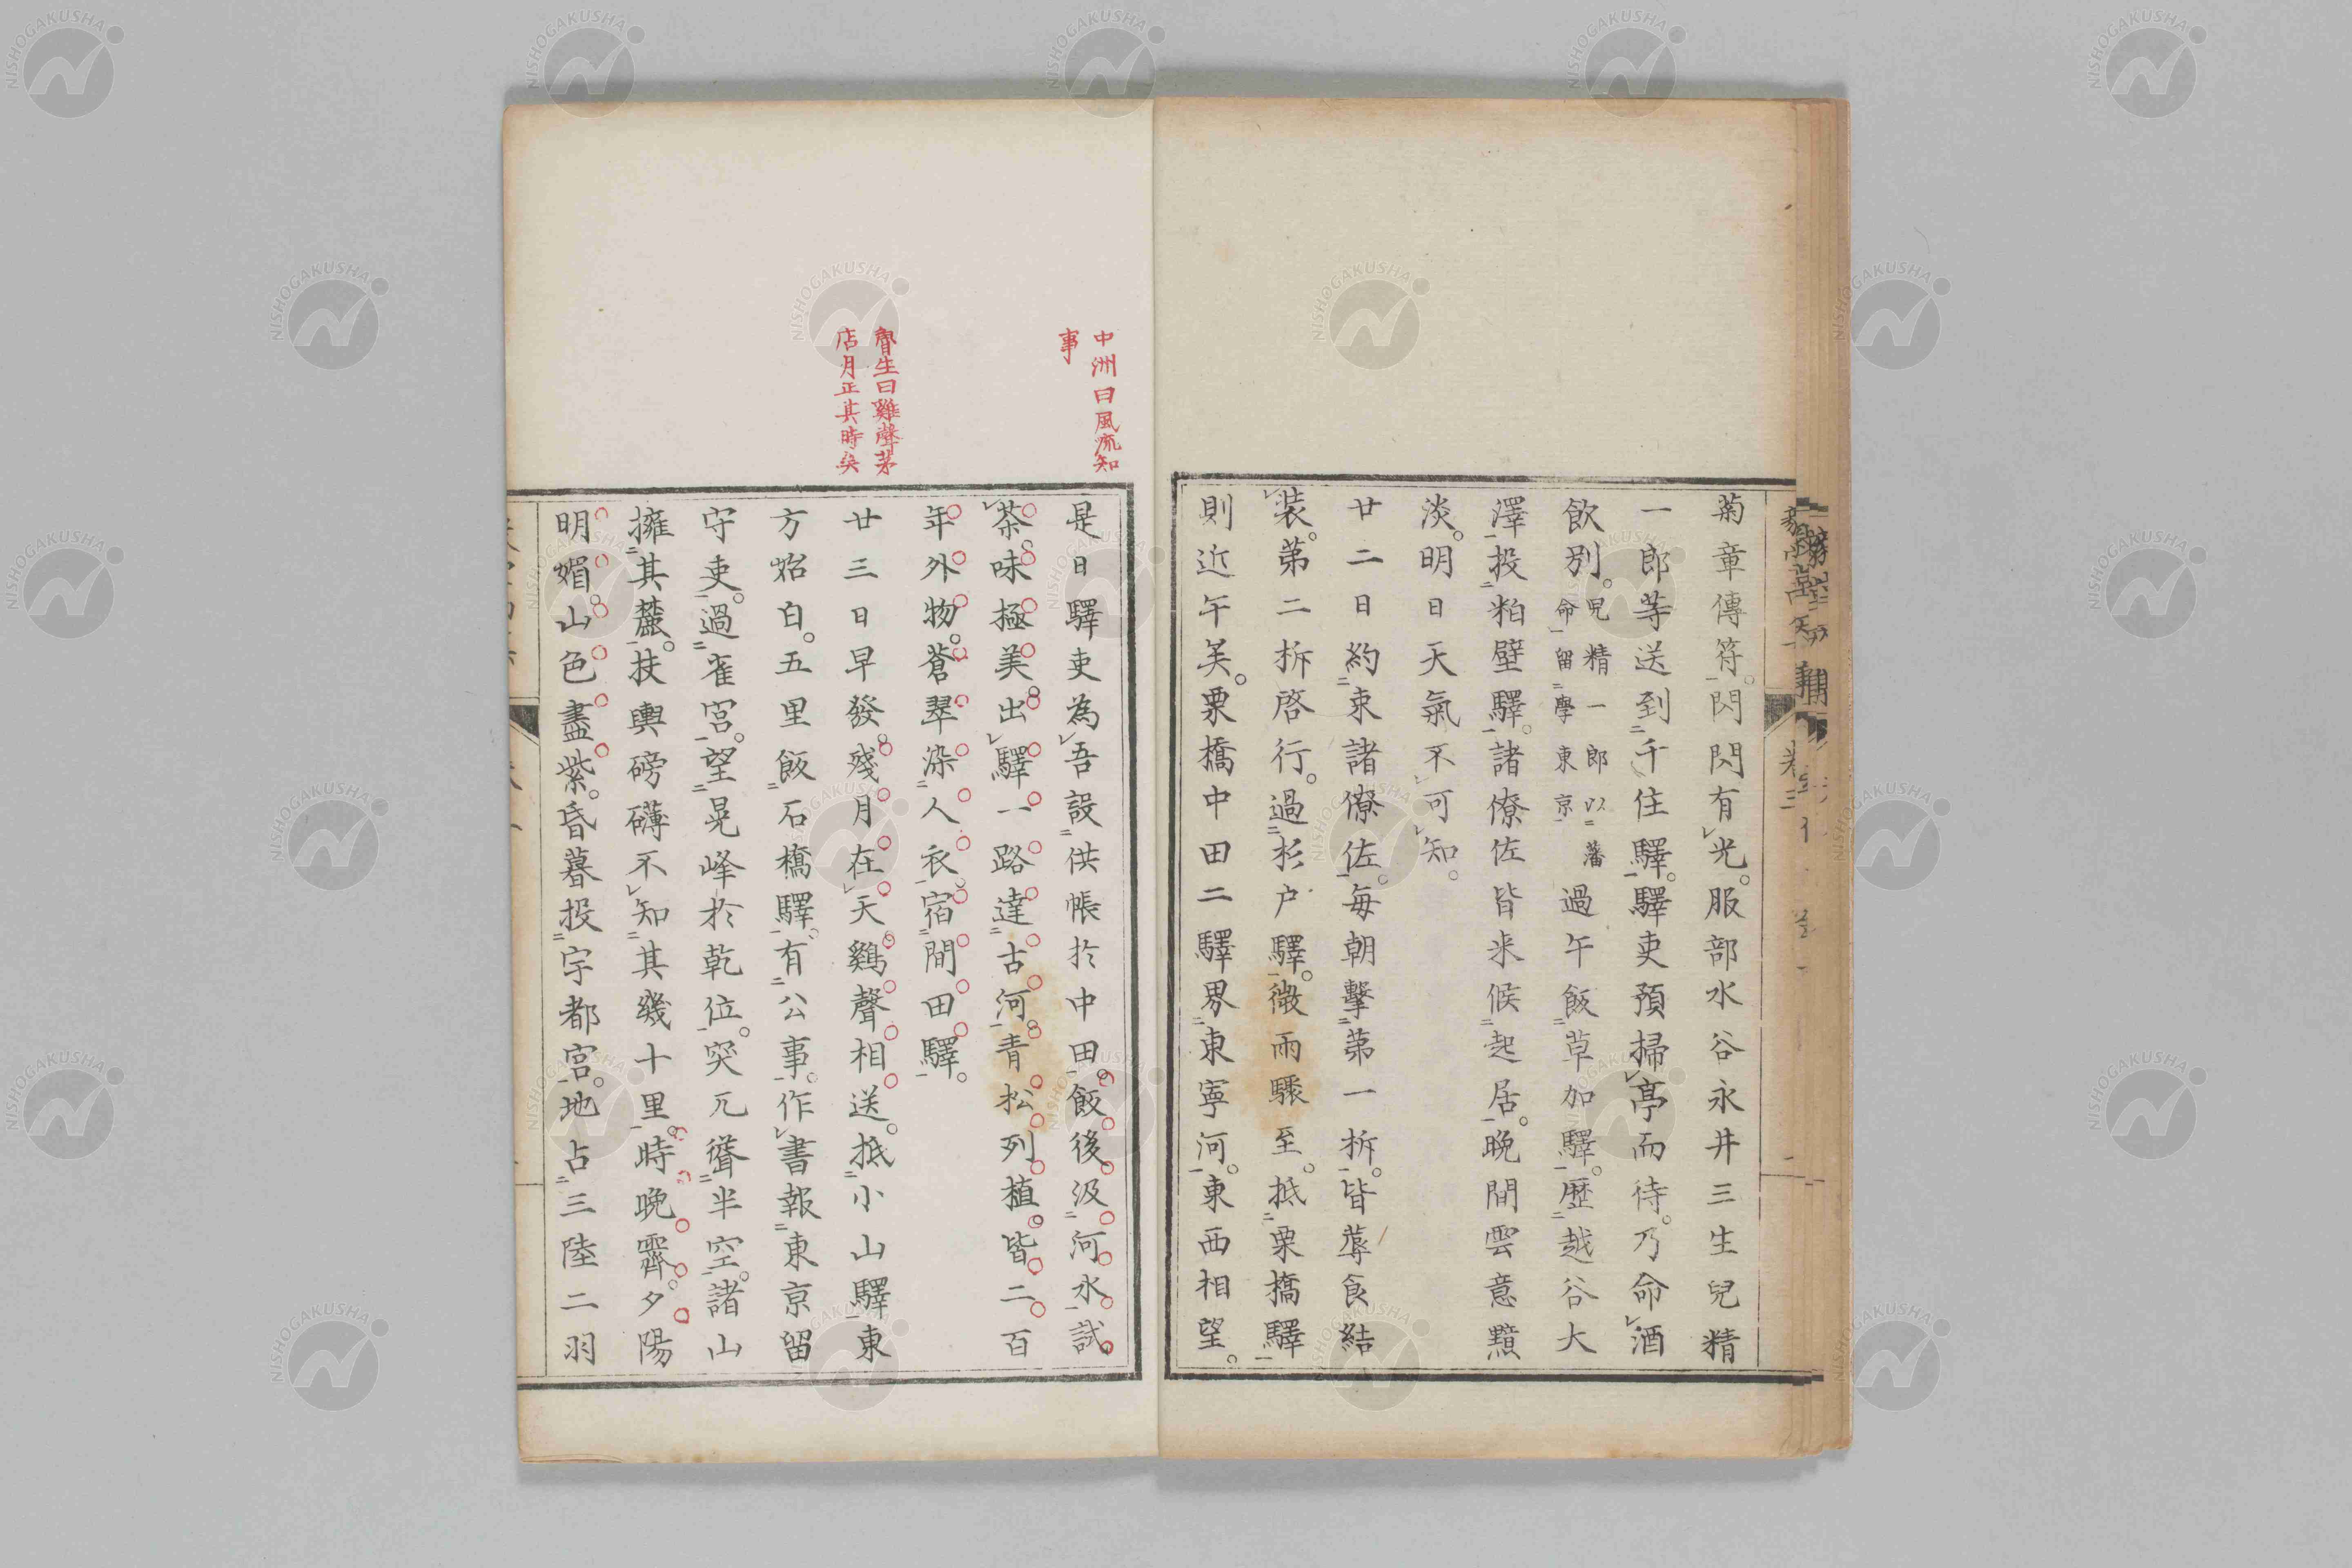 菊章傳符。閃閃有光。服部水谷永井三生兒精
一郎等送到千住驛。驛吏預掃亭而待。乃命酒
飲別。兒精一郎以藩命留學東京過午飯草加驛。歷越谷大
澤投粕壁驛。諸僚佐皆来候起居。晚間雲意黯
淡。明日天氣不可知。
廿二日約束諸僚佐。每朝擊第一柝。皆蓐食結
裝。第二柝啓行。過杉户驛。微雨驟至。抵栗橋驛
則近午矣。栗橋中田二驛界東寧河。東西相望。
中洲曰風流知
事
是日驛吏為吾設供帳於中田。飯後汲河水。試
茶。味極美。出驛。一路達古河。青松列植。皆二百
年外物。蒼翠染人衣。宿間田驛。
魯生曰雞聲茅
店月正其時矣
廿三日早發。殘月在天。鷄聲相送。抵小山驛。東
方始白。五里飯石橋驛。有公事。作書報東京留
守吏。過雀宮。望晃峰於乾位。突兀聳半空。諸山
擁其麓。扶輿磅礴不知其幾十里。時晚霽。夕陽
明媚。山色盡紫。昏暮投宇都宮。地占三陸二羽